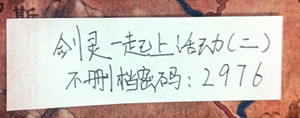 剑灵一起上活动(二)
不删档密码:2976